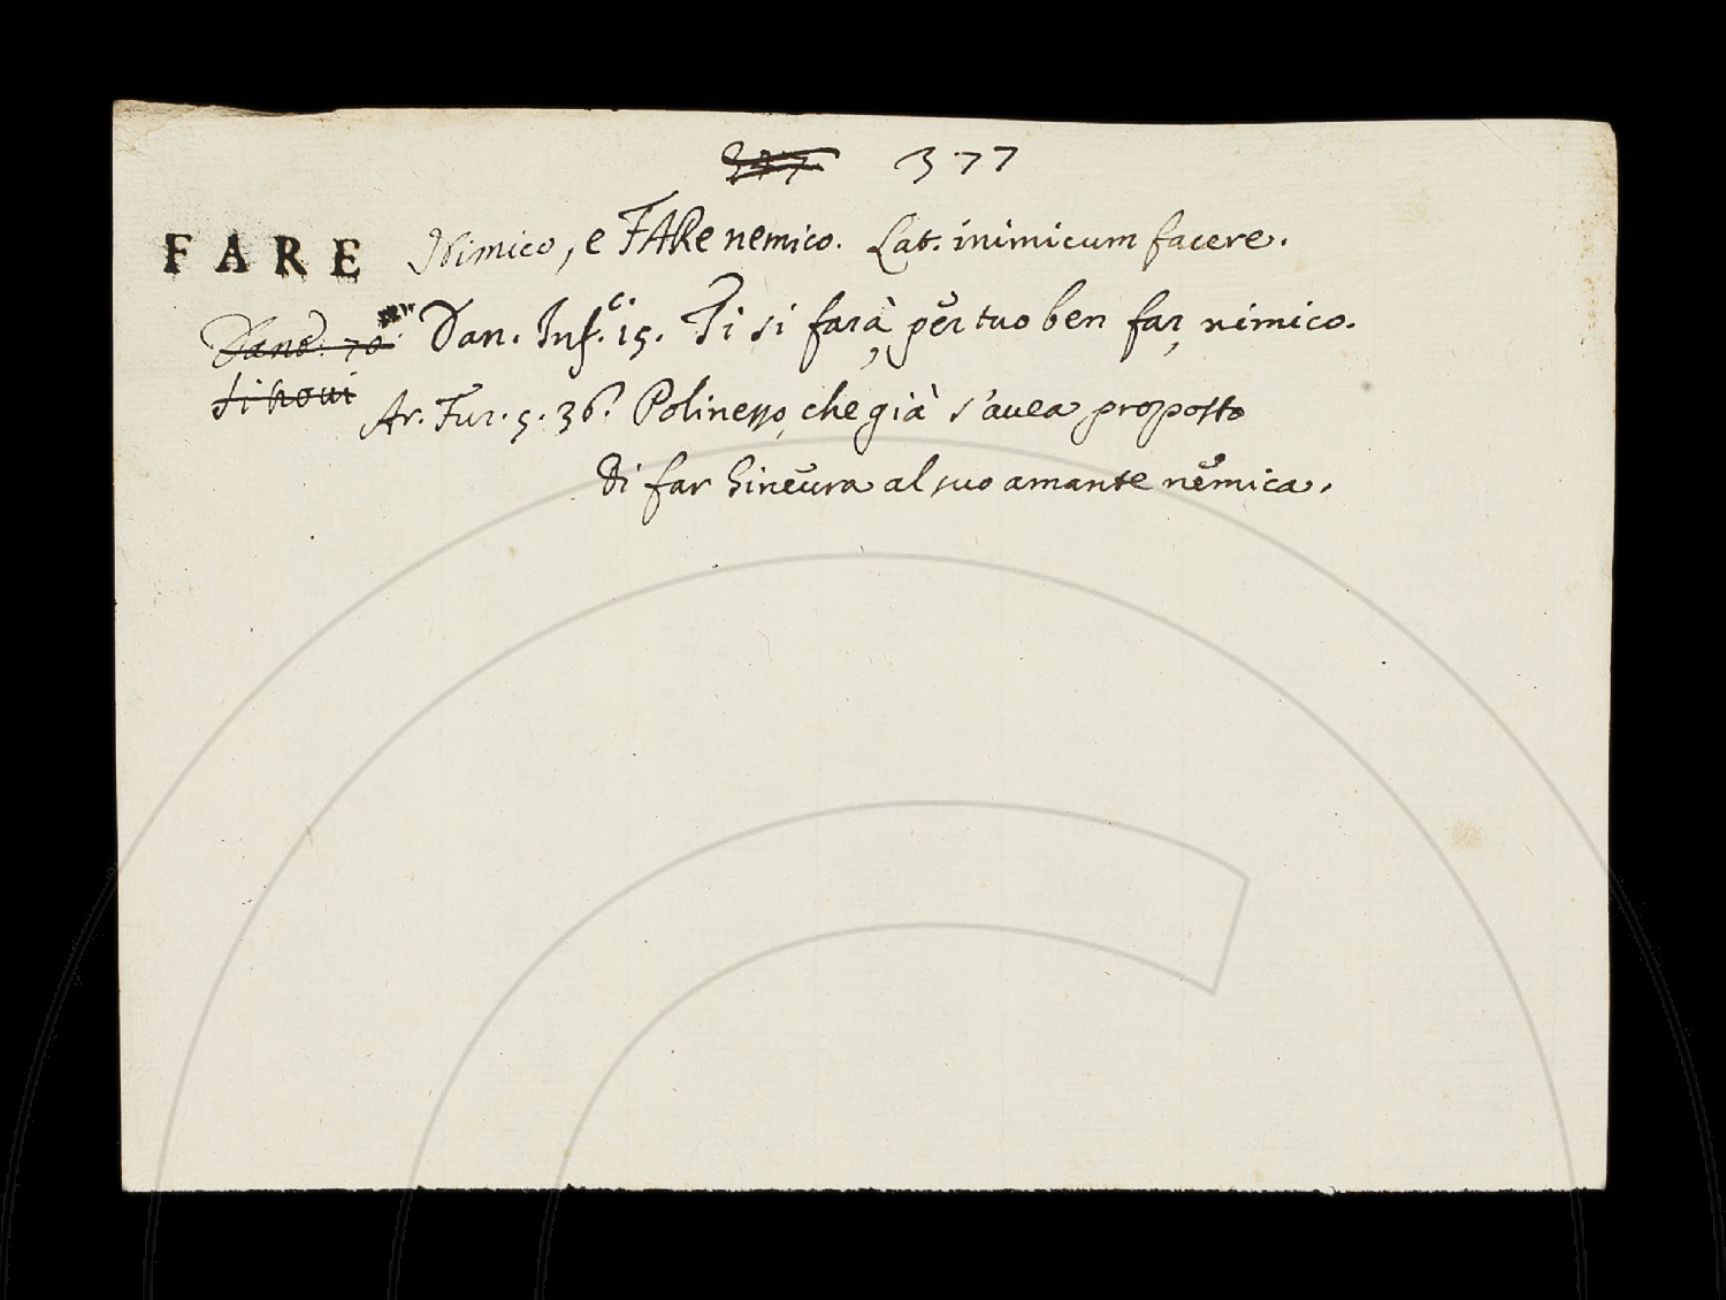 377 377
FARE Nimico, e FARe nemico. Lat. inimicum facere.
Dan. Inf. c. 15. Ti si farà, per tuo ben far, nimico.
Ar. Fur. 5. 36. Polinesso, che già s'auea proposto
Di far Gineura al suo amante nemica.